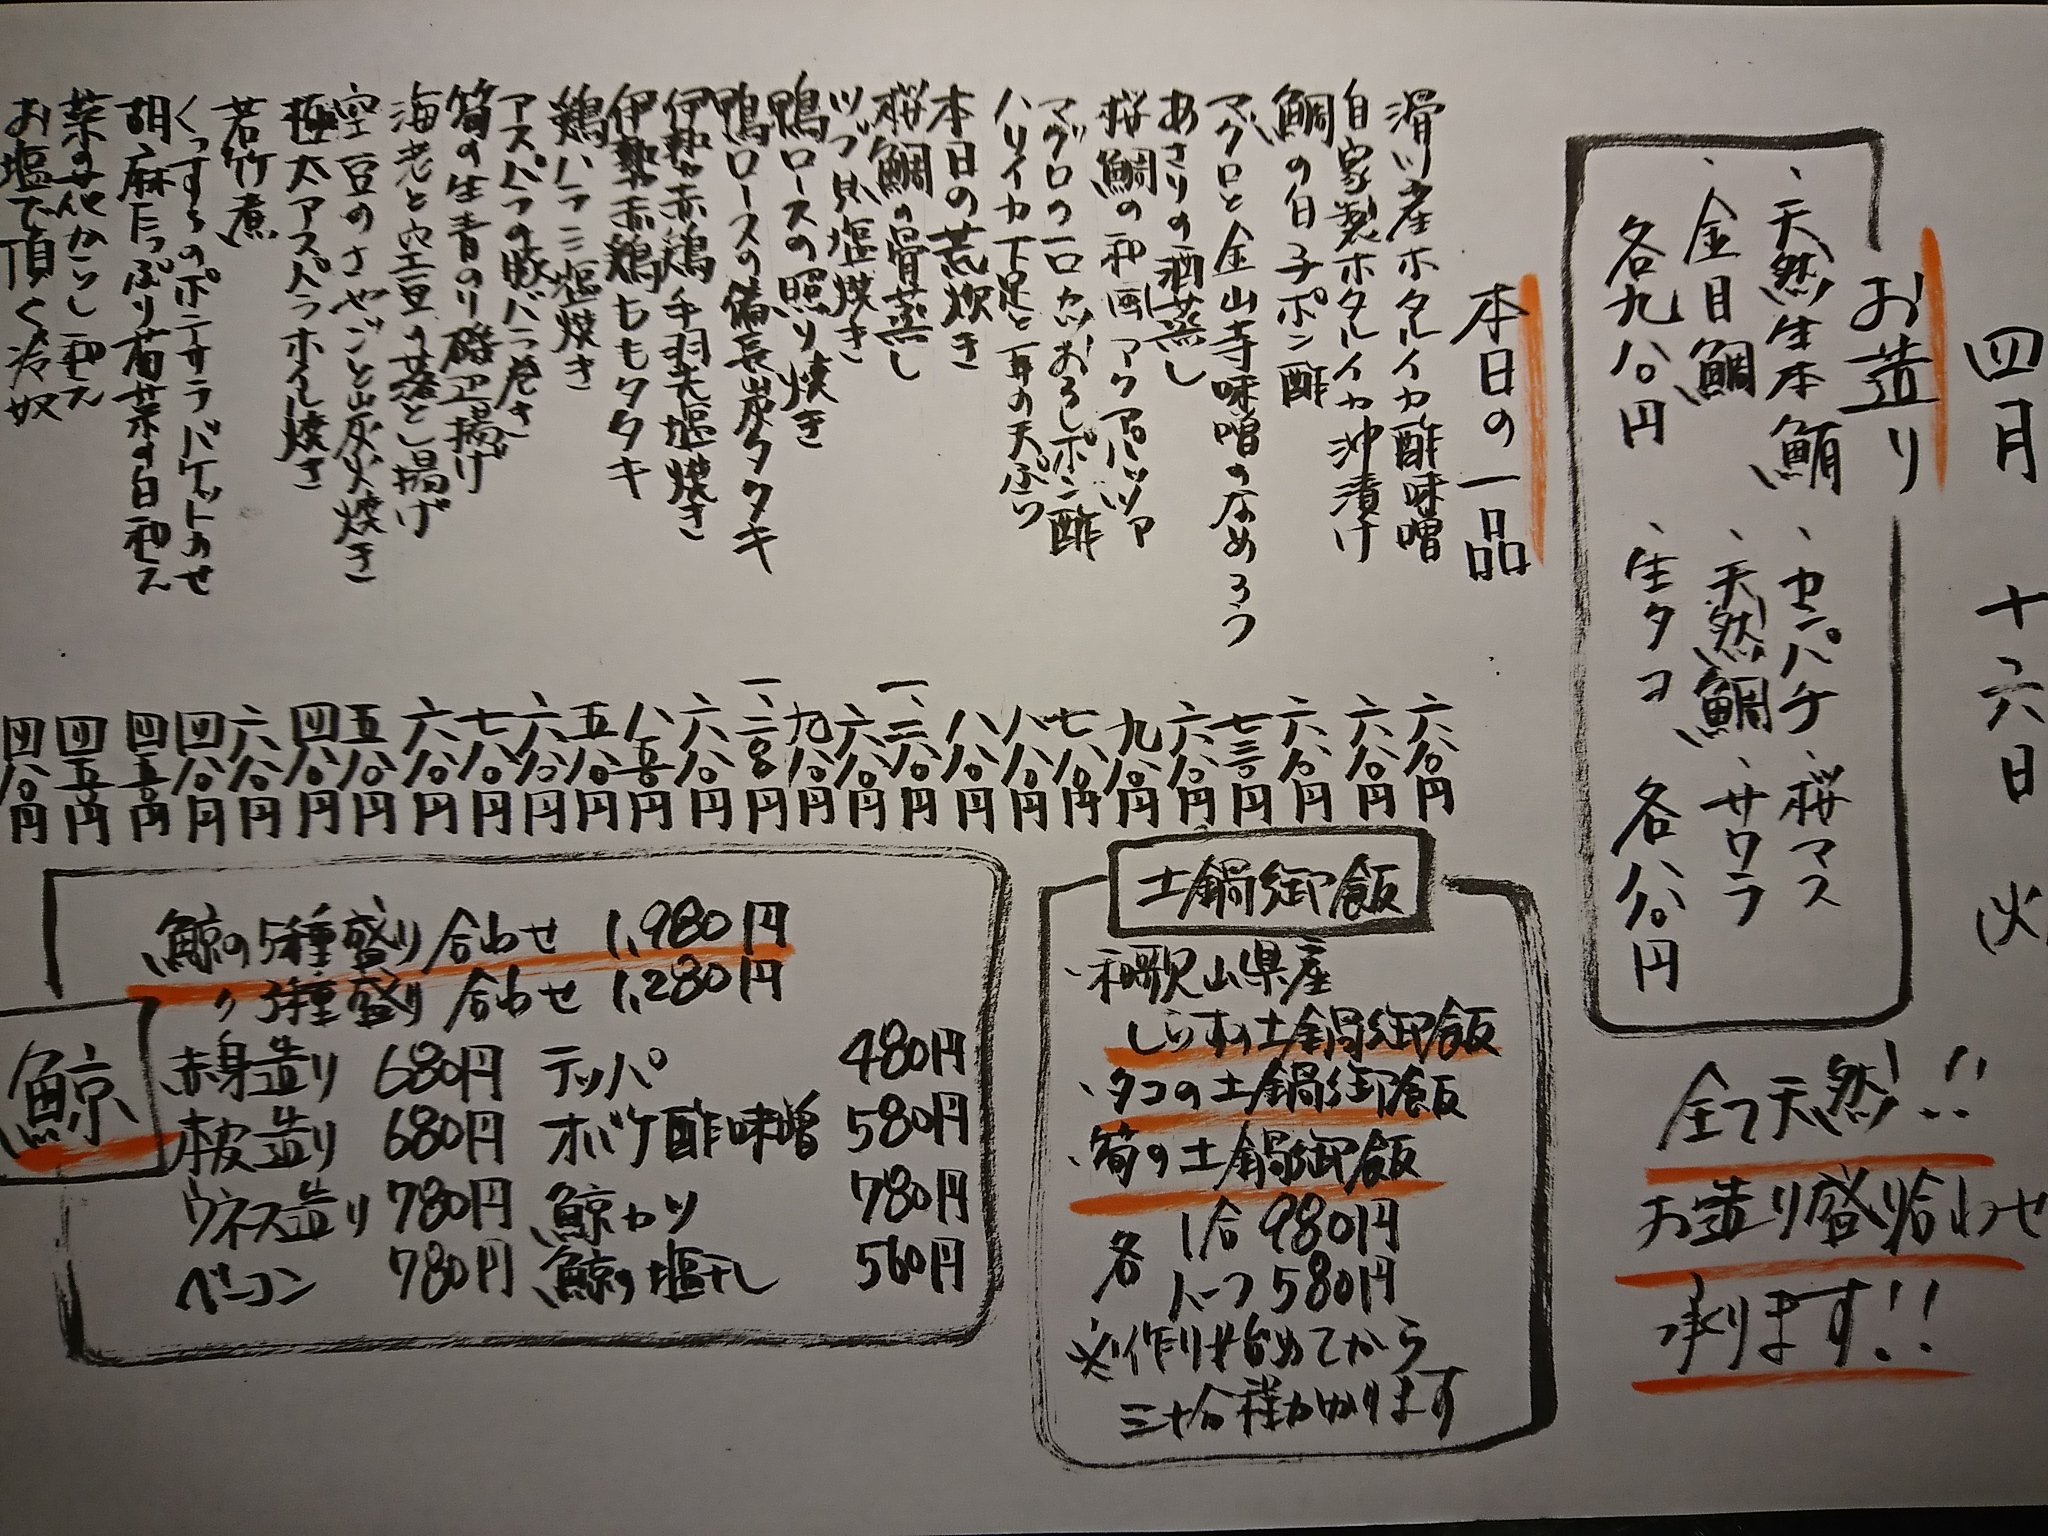 四月 十六日 火
お造り
、天然生本鮪 、カンパチ 、桜マス
、金目鯛 、天然鯛 、サワラ
各九八〇円 、生タコ 各八八〇円
全て天然!!
お造り盛り合わせ
承ります!!
本日の一品
滑川産ホタルイカ酢味噌 六八〇円
自家製ホタルイカ沖漬け 六八〇円
鯛の白子ポン酢 六八〇円
マグロと金山寺味噌のなめろう 七三〇円
あさりの酒蒸し 六八〇円
桜鯛の和風アクアパッツァ 九八〇円
マグロの一口カツおろしポン酢 七八〇円
ハリイカ下足と耳の天ぷら 八八〇円
本日の荒炊き 八八〇円
桜鯛の骨蒸し 一、二八〇円
ツブ貝塩焼き 六八〇円
鴨ロースの照り焼き 九八〇円
鴨ロースの備長炭タタキ 一、二〇〇円
伊勢赤鶏手羽先塩焼き 六八〇円
伊勢赤鶏ももタタキ 八五〇円
鶏ハラミ塩焼き 五八〇円
アスパラの豚バラ巻き 六八〇円
筍の生青のり磯辺揚げ 七八〇円
海老と空豆の落とし揚げ 六八〇円
空豆のさやごと炭火焼き 五八〇円
極太アスパラホイル焼き 四八〇円
若竹煮 六八〇円
くんすらのポテサラバケットのせ 四八〇円
胡麻たっぷり菊菜の白和え 四五〇円
菜の花からし和え 四五〇円
お塩で頂く冷奴 四八〇円
土鍋御飯
、和歌山県産
しらすの土鍋御飯
、タコの土鍋御飯
、筍の土鍋御飯
各 1合 980円
ハーフ 580円
※作り始めてから
三十分程かかります
鯨
鯨の5種盛り合わせ 1,980円
〃3種盛り合わせ 1,280円
赤身造り 680円 テッパ 480円
本皮造り 680円 オバケ酢味噌 580円
ウネス造り 780円 鯨カツ 780円
ベーコン 780円 鯨の塩干し 560円